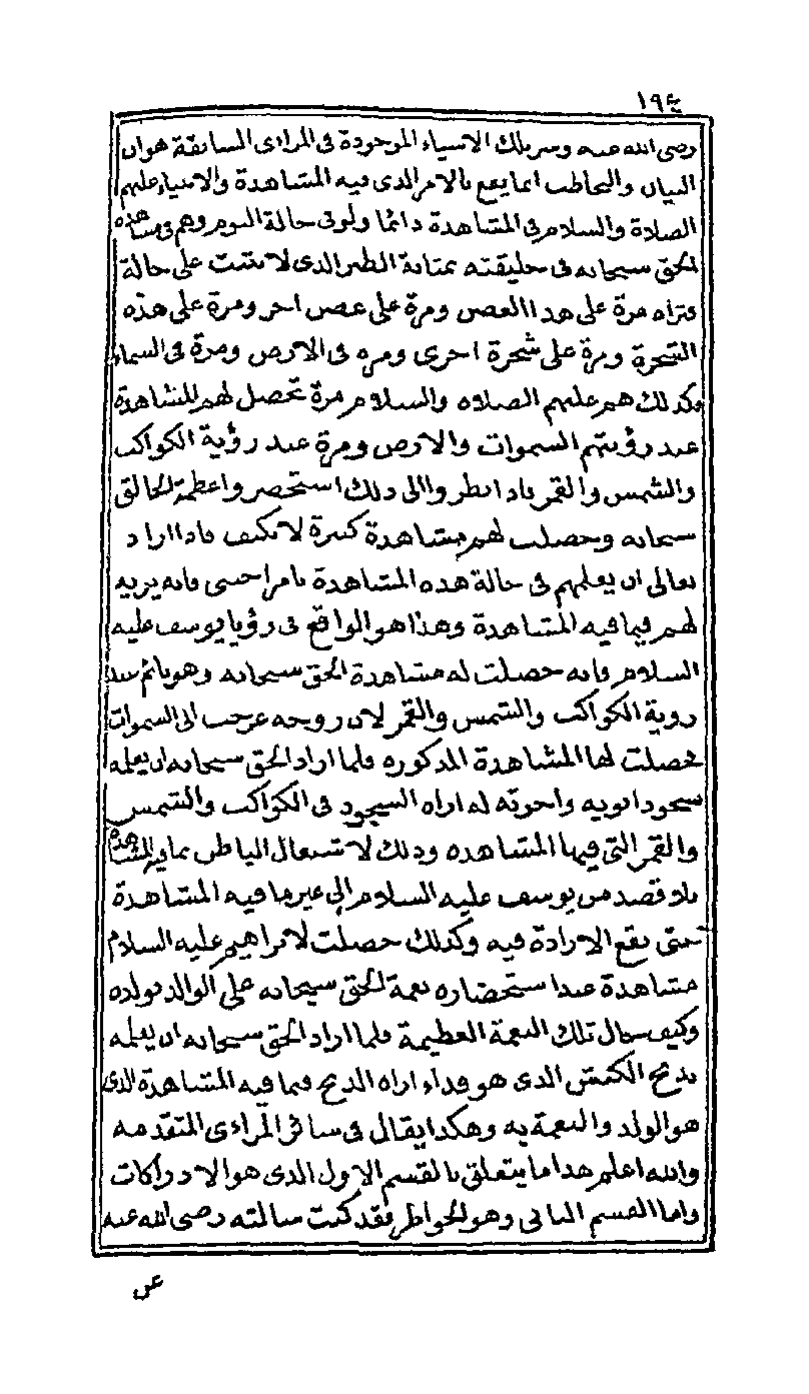 ١٩٤
رضى الله عنه وسر تلك الاشياء الموجودة فى المراءى السابقة هو ان
البيان والتخاطب انما يقع بالامر الذى فيه المشاهدة والانبياء عليهم
الصلاة والسلام فى المشاهدة دائما ولو فى حالة النوم وهم فى مشاهدة
الحق سبحانه فى خليقته بمثابة الطير الذى لا يثبت على حالة
فتراه مرة على هذا الغصن ومرة على غصن اخر ومرة على هذه
الشجرة ومرة على شجرة اخرى ومره فى الارض ومرة فى السماء
وكذلك هم عليهم الصلاه والسلام مرة تحصل لهم المشاهدة
عند رؤيتهم السموات والارض ومرة عند رؤية الكواكب
والشمس والقمر فاذا نظروا الى ذلك استحضروا عظمة الخالق
سبحانه وحصلت لهم مشاهدة كبيرة لا تكيف فاذا اراد
تعالى ان يعلمهم فى حالة هذه المشاهدة بامر اجنبى فانه يريه
لهم فيما فيه المشاهدة وهذا هو الواقع فى رؤيا يوسف عليه
السلام فانه حصلت له مشاهدة الحق سبحانه وهو نائم عند
روية الكواكب والشمس والقمر لان روحه عرجت الى السموات
فحصلت لها المشاهدة المذكوره فلما اراد الحق سبحانه ان يعلمه
بسجود ابويه واخوته له اراه السجود فى الكواكب والشمس
والقمر التى فيها المشاهده وذلك لاشتغال الباطن بما فيه المشاهدة
بلا قصد من يوسف عليه السلام الى غير ما فيه المشاهدة
حتى تقع الارادة فيه وكذلك حصلت لابراهيم عليه السلام
مشاهدة عند استحضاره نعمة الحق سبحانه على الوالد بولده
وكيف حال تلك النعمة العظيمة فلما اراد الحق سبحانه ان يعلمه
بذبح الكبش الذى هو فداء اراه الذبح فيما فيه المشاهدة الذى
هو الولد والنعمة به وهكذا يقال فى سائر المراءى المتقدمه
والله اعلم هذا ما يتعلق بالقسم الاول الذى هو الادراكات
واما القسم الثانى وهو الخواطر فقد كنت سالته رضى الله عنه
عن